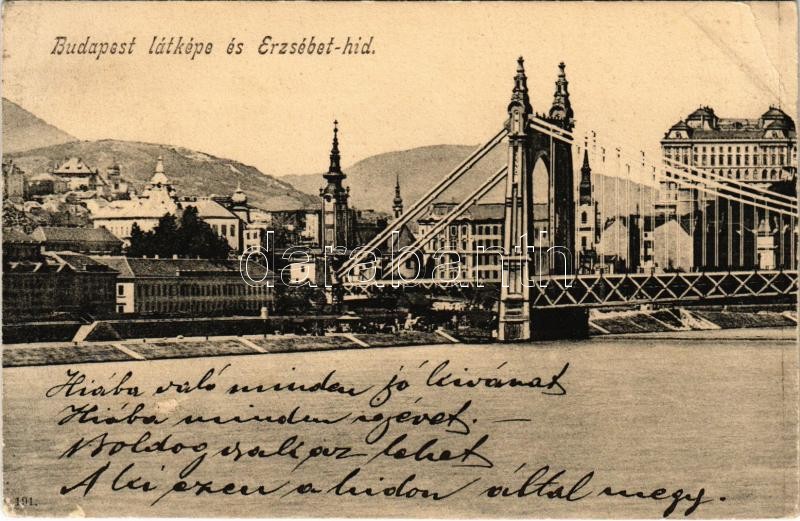 Budapest látképe és Erzsébet-hid.
darabanth
Hiába való minden jó kivánat
Hiába minden igévet. —
Boldog csak az lehet
A ki ezen a hidon által megy.
191.